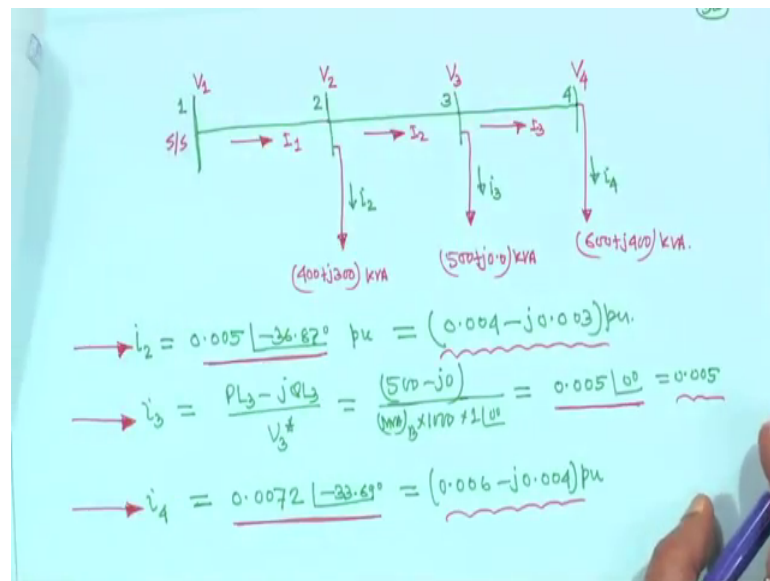 V1 V2 V3 V4
1 2 3 4
S/S → I1 → I2 → I3
↓i2 ↓i3 ↓i4
(400+j300) KVA (500+j0.0) KVA (600+j400) KVA.
→ i2 = 0.005 ∠-36.87° pu = (0.004 - j0.003) pu.
→ i3 = PL3 - jQL3 / V3* = (500 - j0) / (MVA)B ×1000 ×1∠0° = 0.005∠0° = 0.005
→ i4 = 0.0072 ∠-33.69° = (0.006 - j0.004) pu